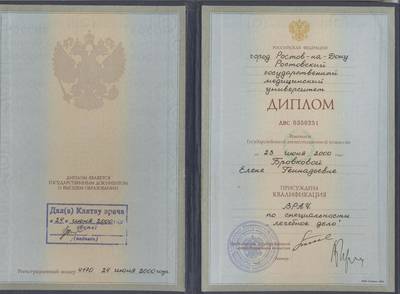 ДИПЛОМ ЯВЛЯЕТСЯ
ГОСУДАРСТВЕННЫМ ДОКУМЕНТОМ
О ВЫСШЕМ ОБРАЗОВАНИИ
Дал(а) Клятву врача
"24" июня 2000
(подпись)
Регистрационный номер 4170 24 июня 2000 года
РОССИЙСКАЯ ФЕДЕРАЦИЯ
город Ростов-на-Дону
Ростовский
государственный
медицинский
университет
ДИПЛОМ
АВС 0350251
Решением
Государственной аттестационной комиссии
от 23 июня 2000 года
Бровковой
Елене Геннадьевне
ПРИСУЖДЕНА
КВАЛИФИКАЦИЯ
ВРАЧ
по специальности
"лечебное дело"
Председатель Государственной
аттестационной комиссии
Ректор